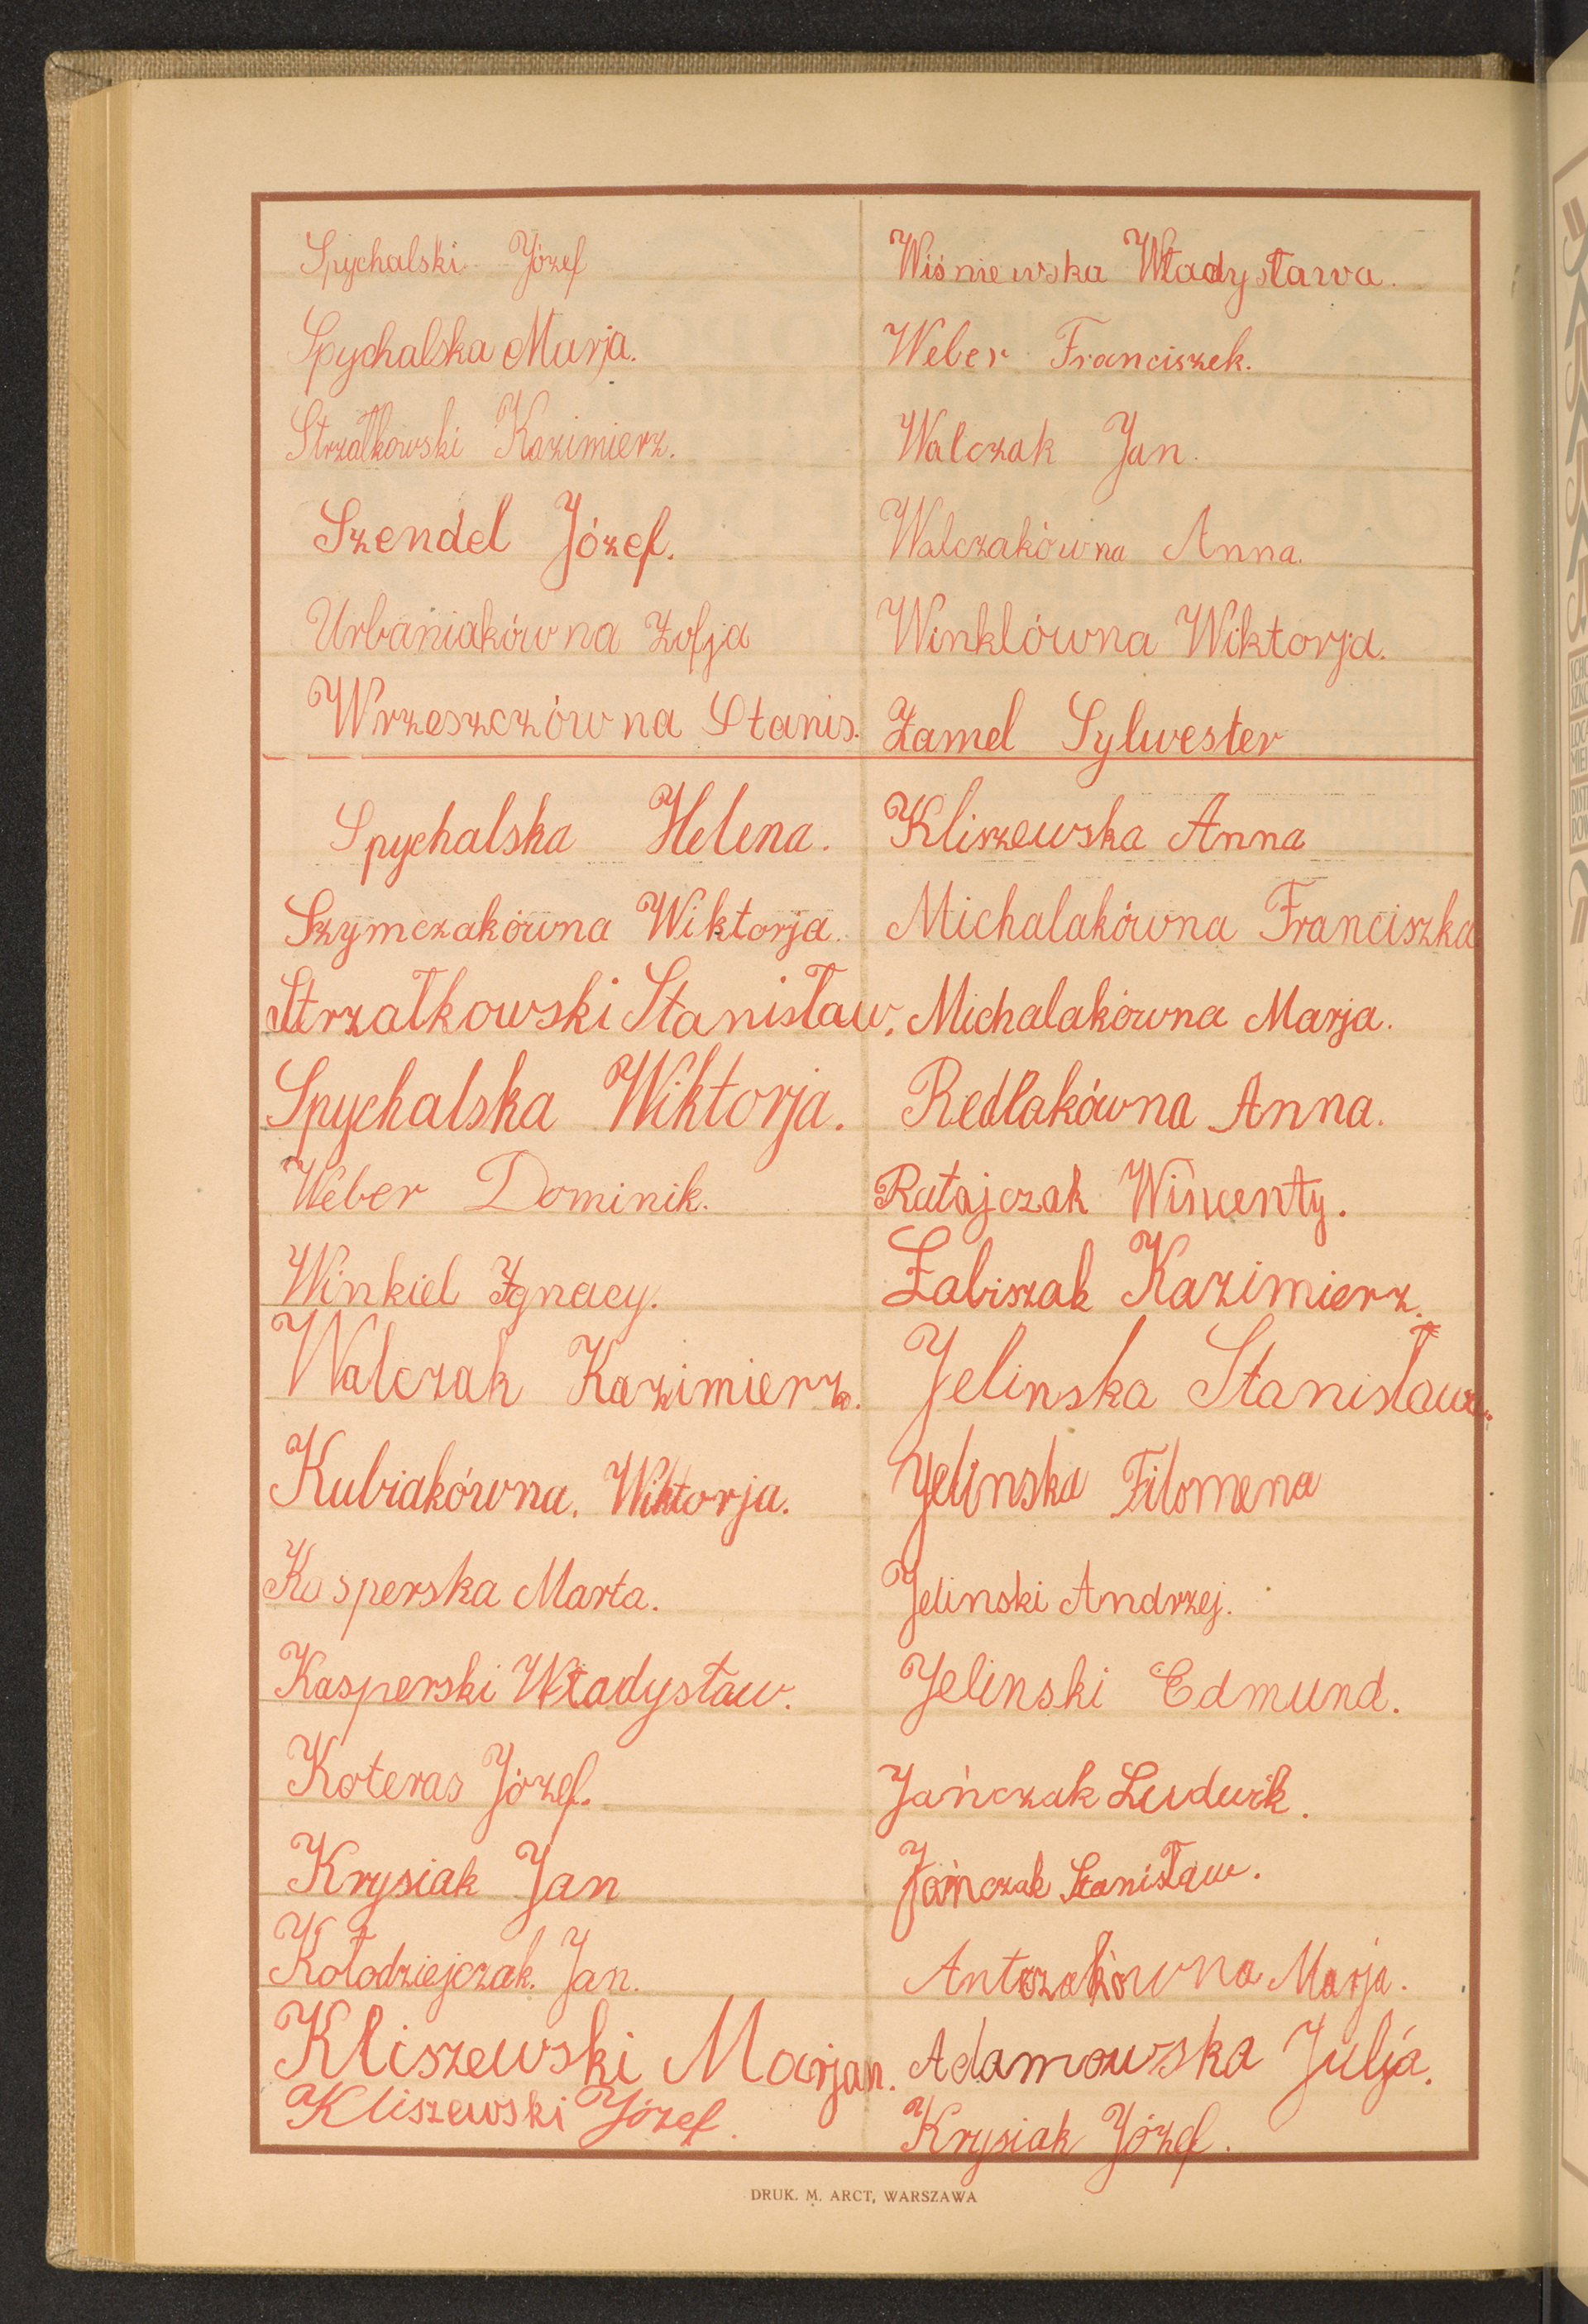 Spychalski Józef
Spychalska Marja.
Strzałkowski Kazimierz.
Szendel Józef.
Urbaniakówna Zofja
Wrzeszczówna Stanis.
Wiśniewska Władysława.
Weber Franciszek.
Walczak Jan.
Walczakówna Anna.
Winklówna Wiktorja.
Zamel Sylwester
Spychalska Helena.
Szymczakówna Wiktorja.
Strzałkowski Stanisław.
Spychalska Wiktorja.
Weber Dominik.
Winkiel Ignacy.
Walczak Kazimierz.
Kubiakówna. Wiktorja.
Kasperska Marta.
Kasperski Władysław.
Koteras Józef.
Krysiak Jan
Kołodziejczak. Jan.
Kliszewski Marjan.
Kliszewski Józef.
Kliszewska Anna
Michalakówna Franciszka
Michalakówna Marja.
Redlakówna Anna.
Ratajczak Wincenty.
Łabiszak Kazimierz.
Jelinska Stanisława.
Jelinska Filomena
Jelinski Andrzej.
Jelinski Edmund.
Jańczak Ludwik.
Jańczak Stanisław.
Antczakówna Marja.
Adamowska Julja.
Krysiak Józef.
DRUK. M. ARCT, WARSZAWA